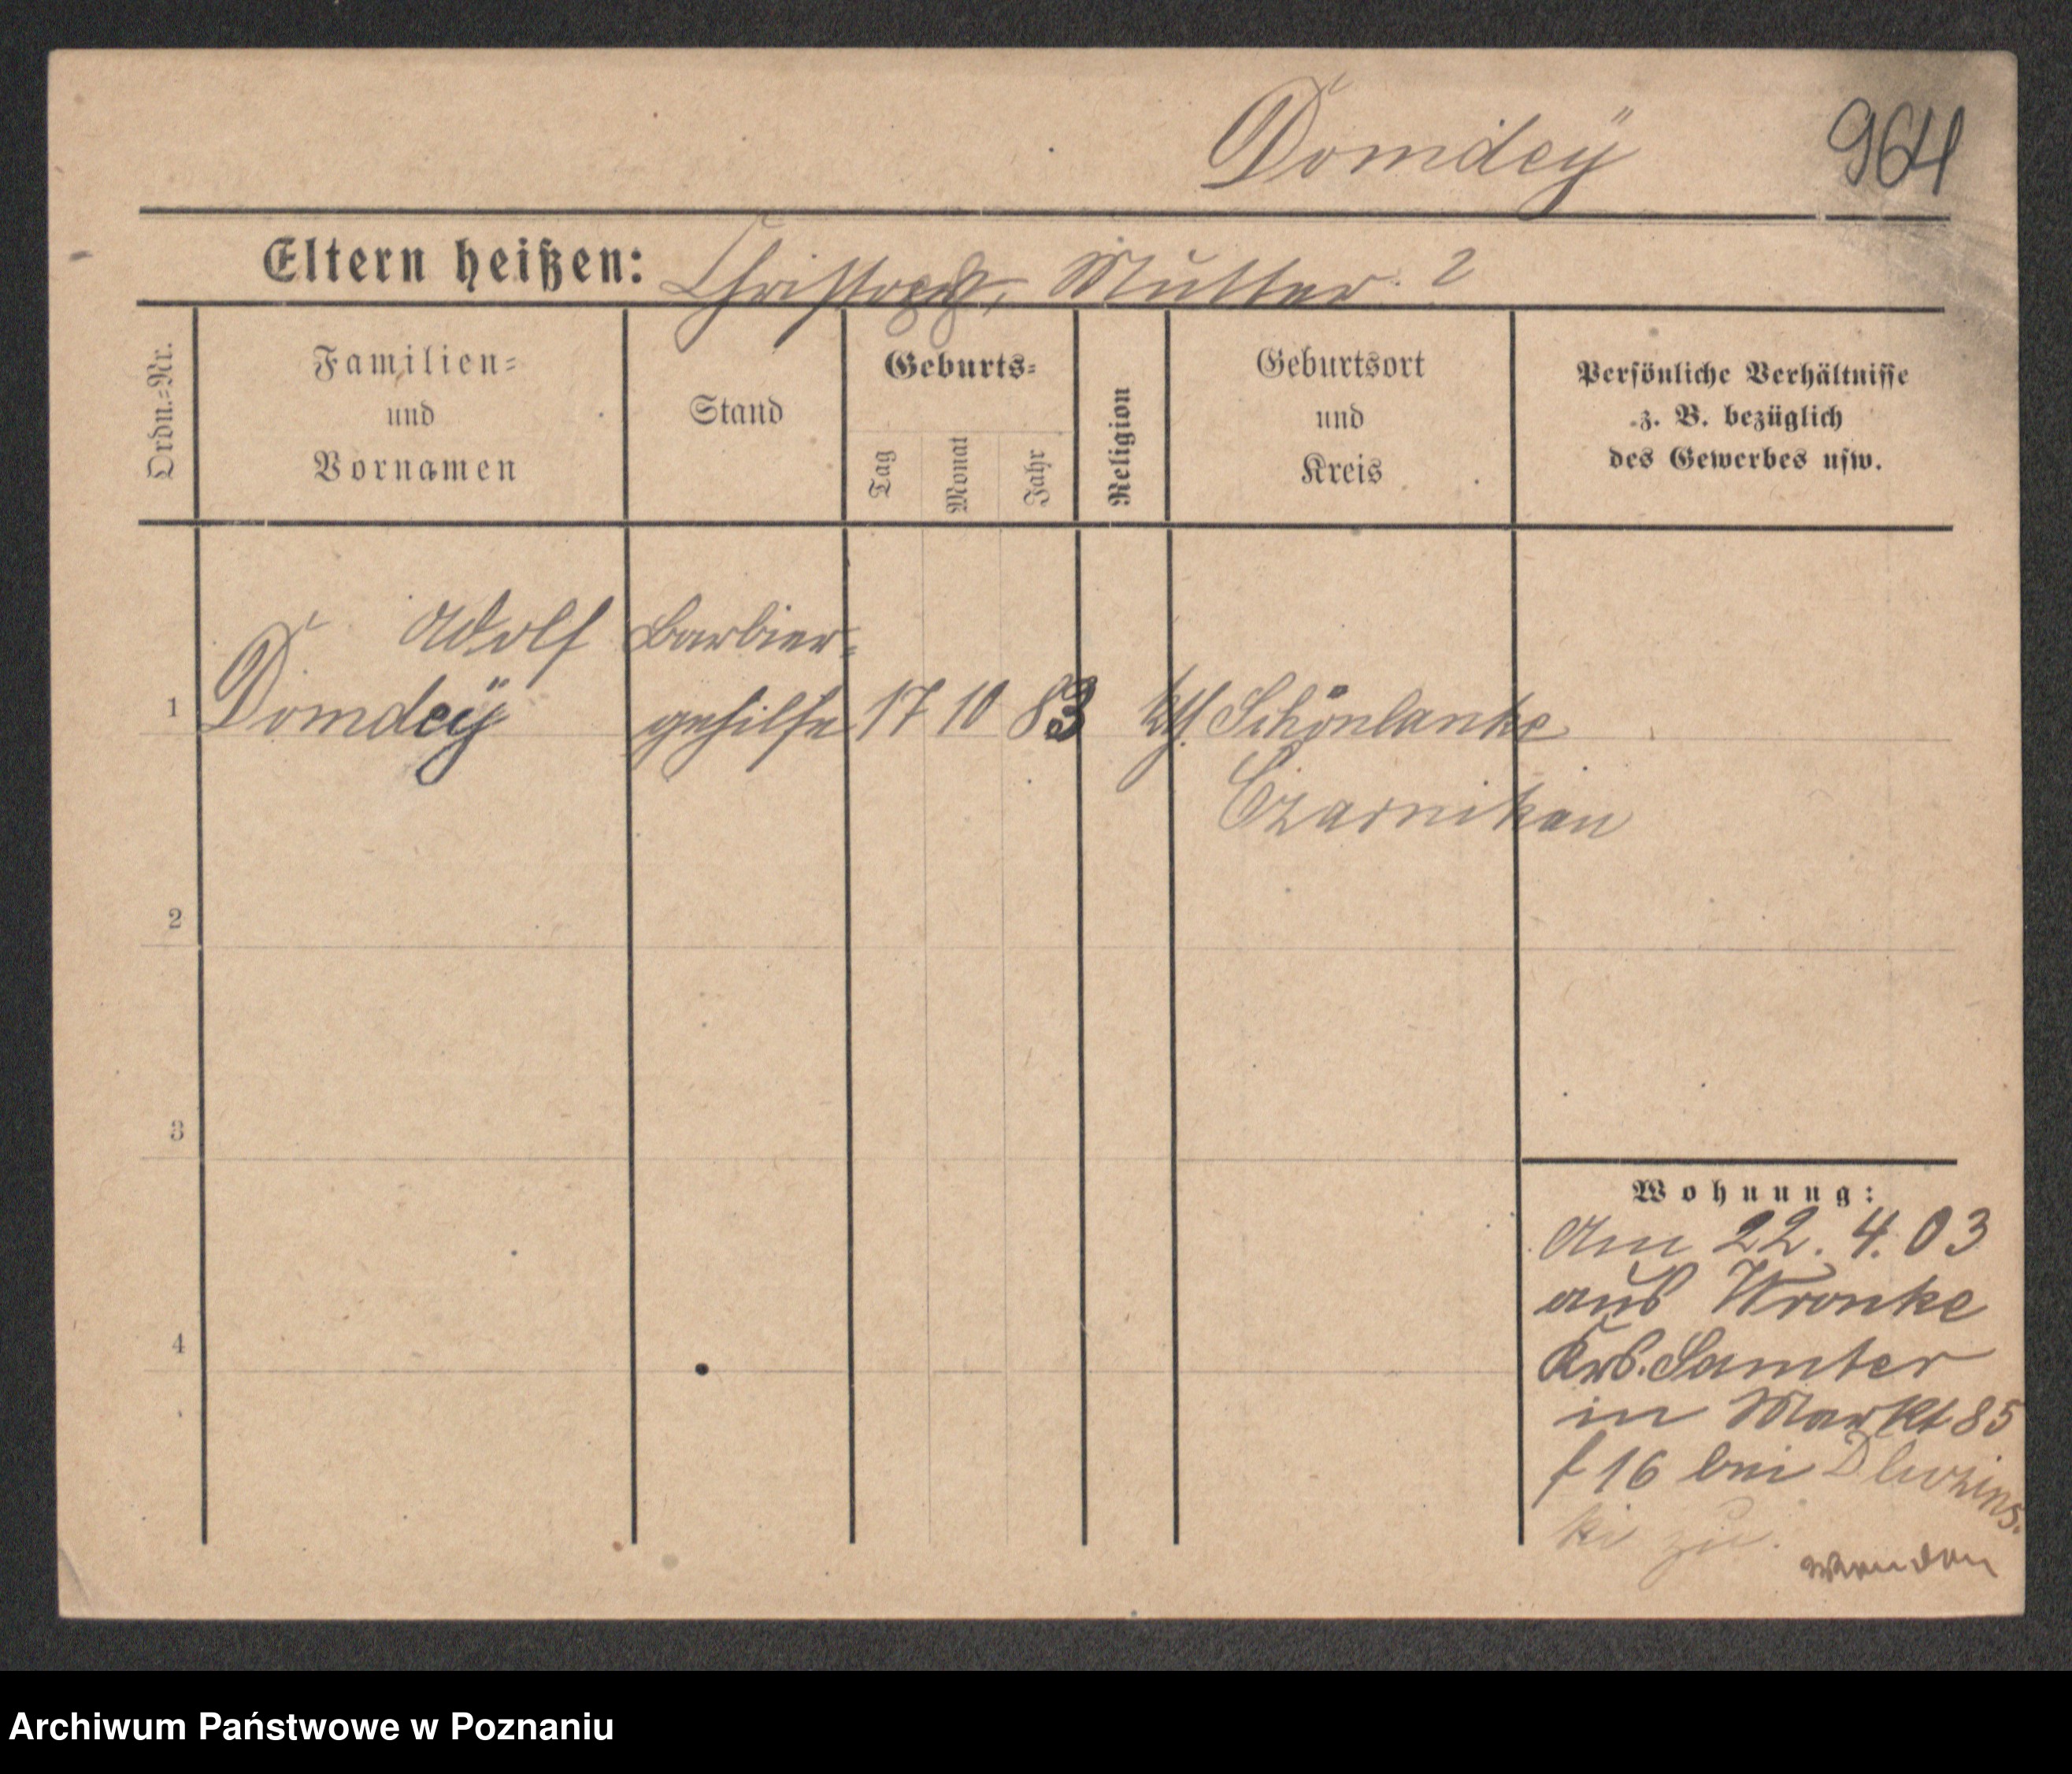 Domdeÿ 964
Eltern heißen: Christoph, Mutter ?
Ordn.=Nr.
Familien=
und
Vornamen
Stand
Geburts=
Tag
Monat
Jahr
Religion
Geburtsort
und
Kreis
Persönliche Verhältnisse
z. B. bezüglich
des Gewerbes usw.
Adolf Barbier=
1 Domdeÿ gehilfe 17 10 83 Schönlanke
Czarnikau
2
3
4
Wohnung:
Am 22. 4. 03
aus Wronke
Krs. Samter
in Markt 85
f 16 bei Dluzins.
ki zu.
wenden
Archiwum Państwowe w Poznaniu